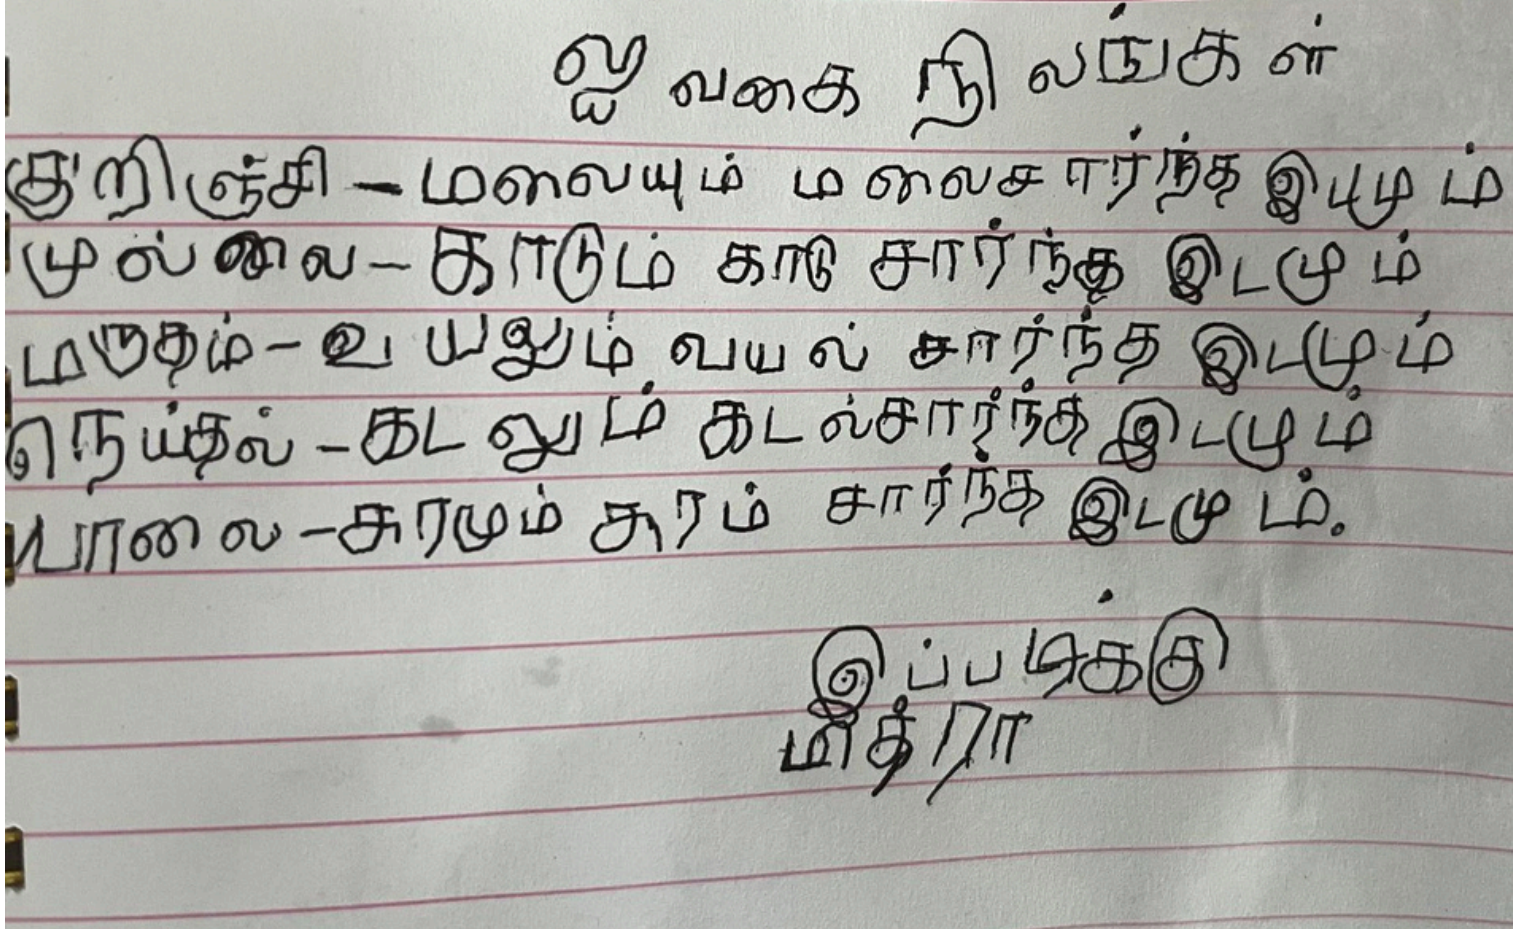 ஐ வகை நிலங்கள்
குறிஞ்சி - மலையும் மலைசார்ந்த இடமும்
முல்லை - காடும் காடு சார்ந்த இடமும்
மருதம் - வயலும் வயல் சார்ந்த இடமும்
நெய்தல் - கடலும் கடல்சார்ந்த இடமும்
பாலை - சுரமும் சுரம் சார்ந்த இடமும்.
இப்படிக்கு
மித்ரா